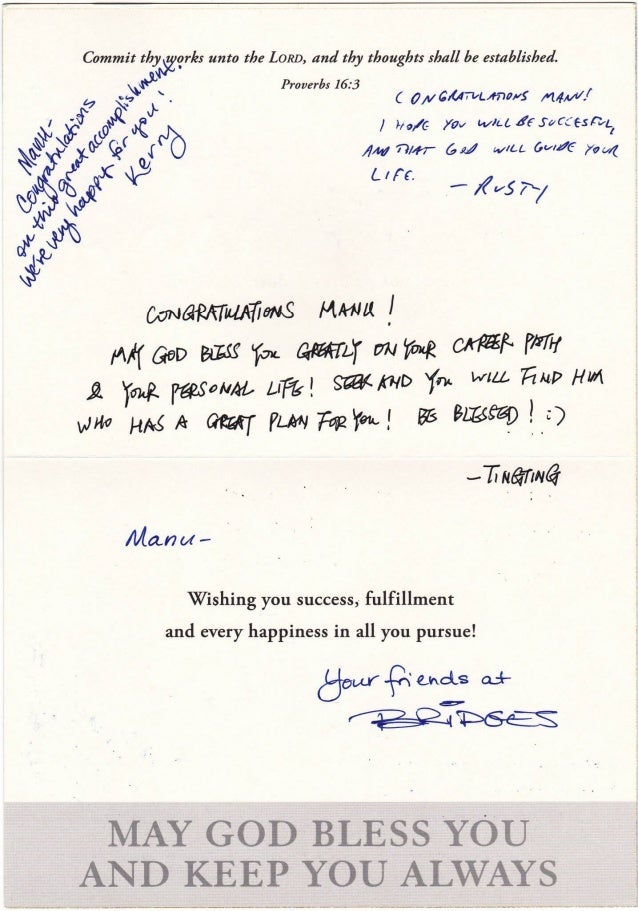 Commit thy works unto the LORD, and thy thoughts shall be established.
Proverbs 16:3
Manu-
Congratulations
on this great accomplishment.
We're very happy for you!
Kerry
CONGRATULATIONS MANU!
I HOPE YOU WILL BE SUCCESFUL,
AND THAT GOD WILL GUIDE YOUR
LIFE.
- RUSTY
CONGRATULATIONS MANU!
MAY GOD BLESS YOU GREATLY ON YOUR CAREER PATH
& YOUR PERSONAL LIFE! SEEK AND YOU WILL FIND HIM
WHO HAS A GREAT PLAN FOR YOU! BE BLESSED! :)
- TINGTING
Manu-
Wishing you success, fulfillment
and every happiness in all you pursue!
Your friends at
BRIDGES
MAY GOD BLESS YOU
AND KEEP YOU ALWAYS